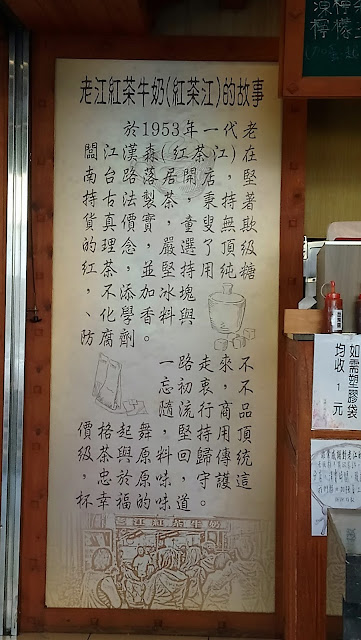 老江紅茶牛奶(紅茶江)的故事
於1953年一代老
闆江漢森(紅茶江)在
南台路落居開店，堅
持古法製茶，秉持著
貨真價實，童叟無欺
的理念，嚴選了頂級
紅茶，並堅持用純糖
、不添加冰塊
、化學香料與
防腐劑。
一路走來，不
忘初衷，不
隨流行商品
價格起舞，堅持頂
級茶與原料，回歸傳統
，忠於原味，守護這
杯幸福的味道。
江紅茶牛奶
檸檬
如需塑膠袋
均收1元